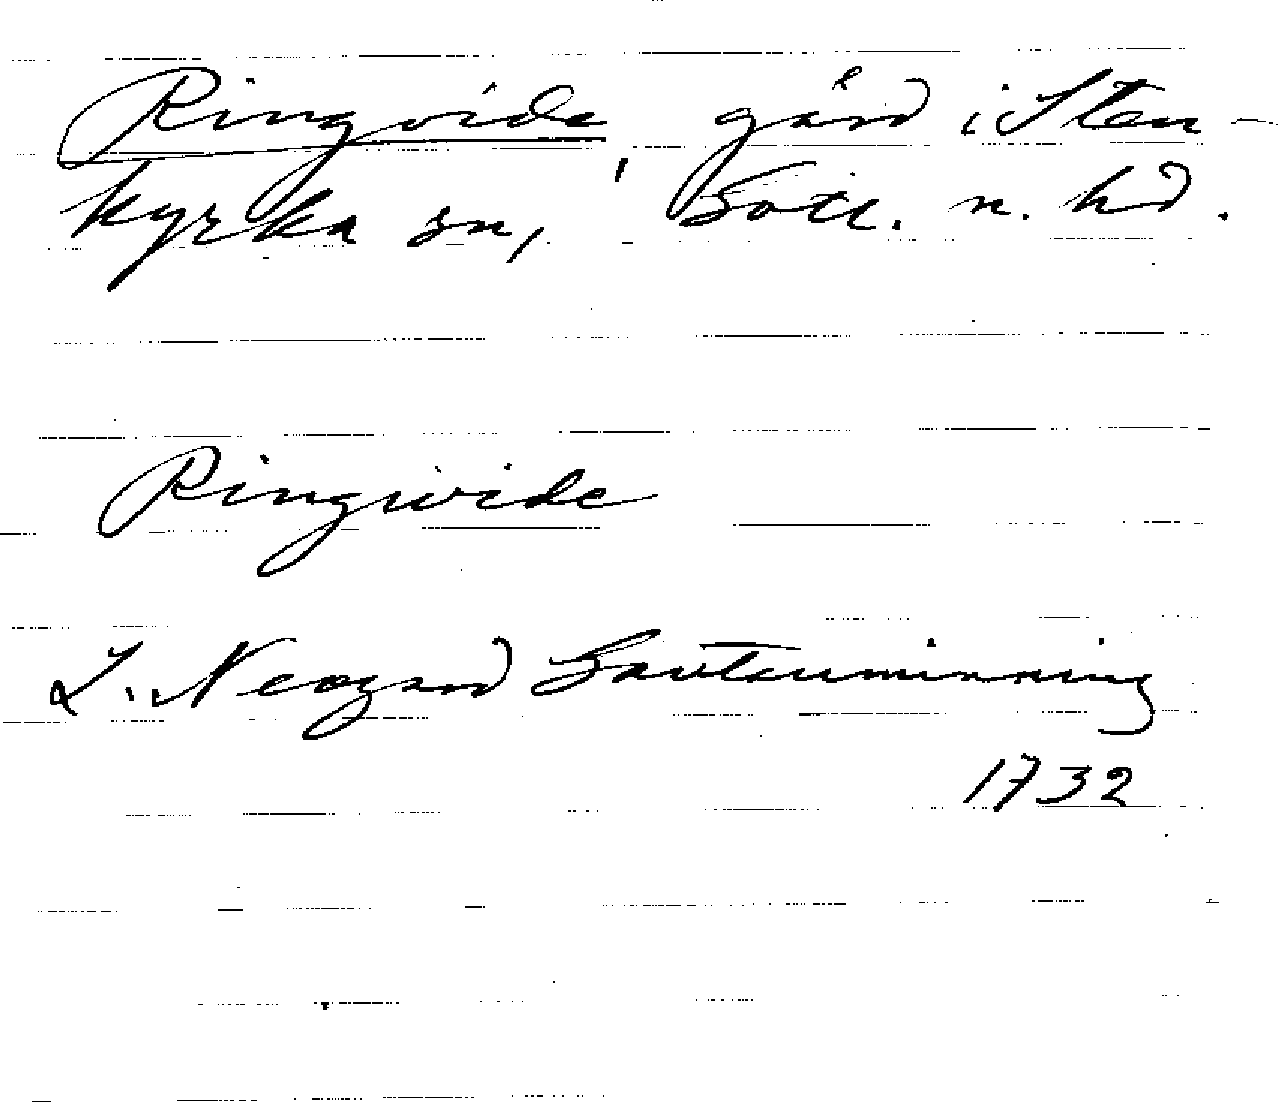 Ringvide, gård i Sten-
kyrka sn, Gotl. n. hd.
Ringwide
L. Neogard Gautauminning
1732